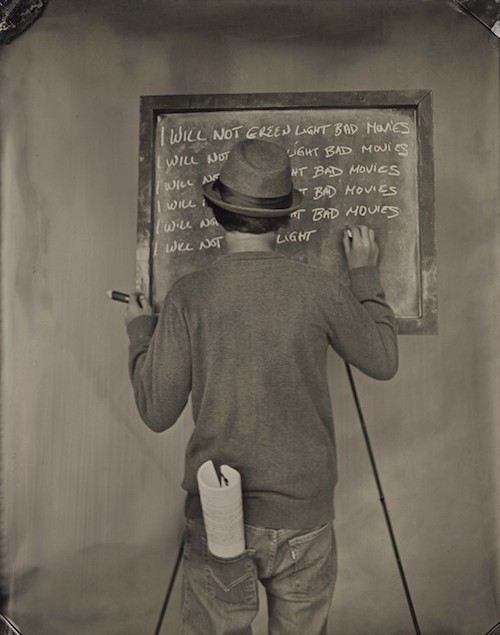 I WILL NOT GREEN LIGHT BAD MOVIES
I WILL NOT LIGHT BAD MOVIES
I WILL NOT BAD MOVIES
I WILL BAD MOVIES
I WILL NOT BAD MOVIES
I WILL NOT LIGHT